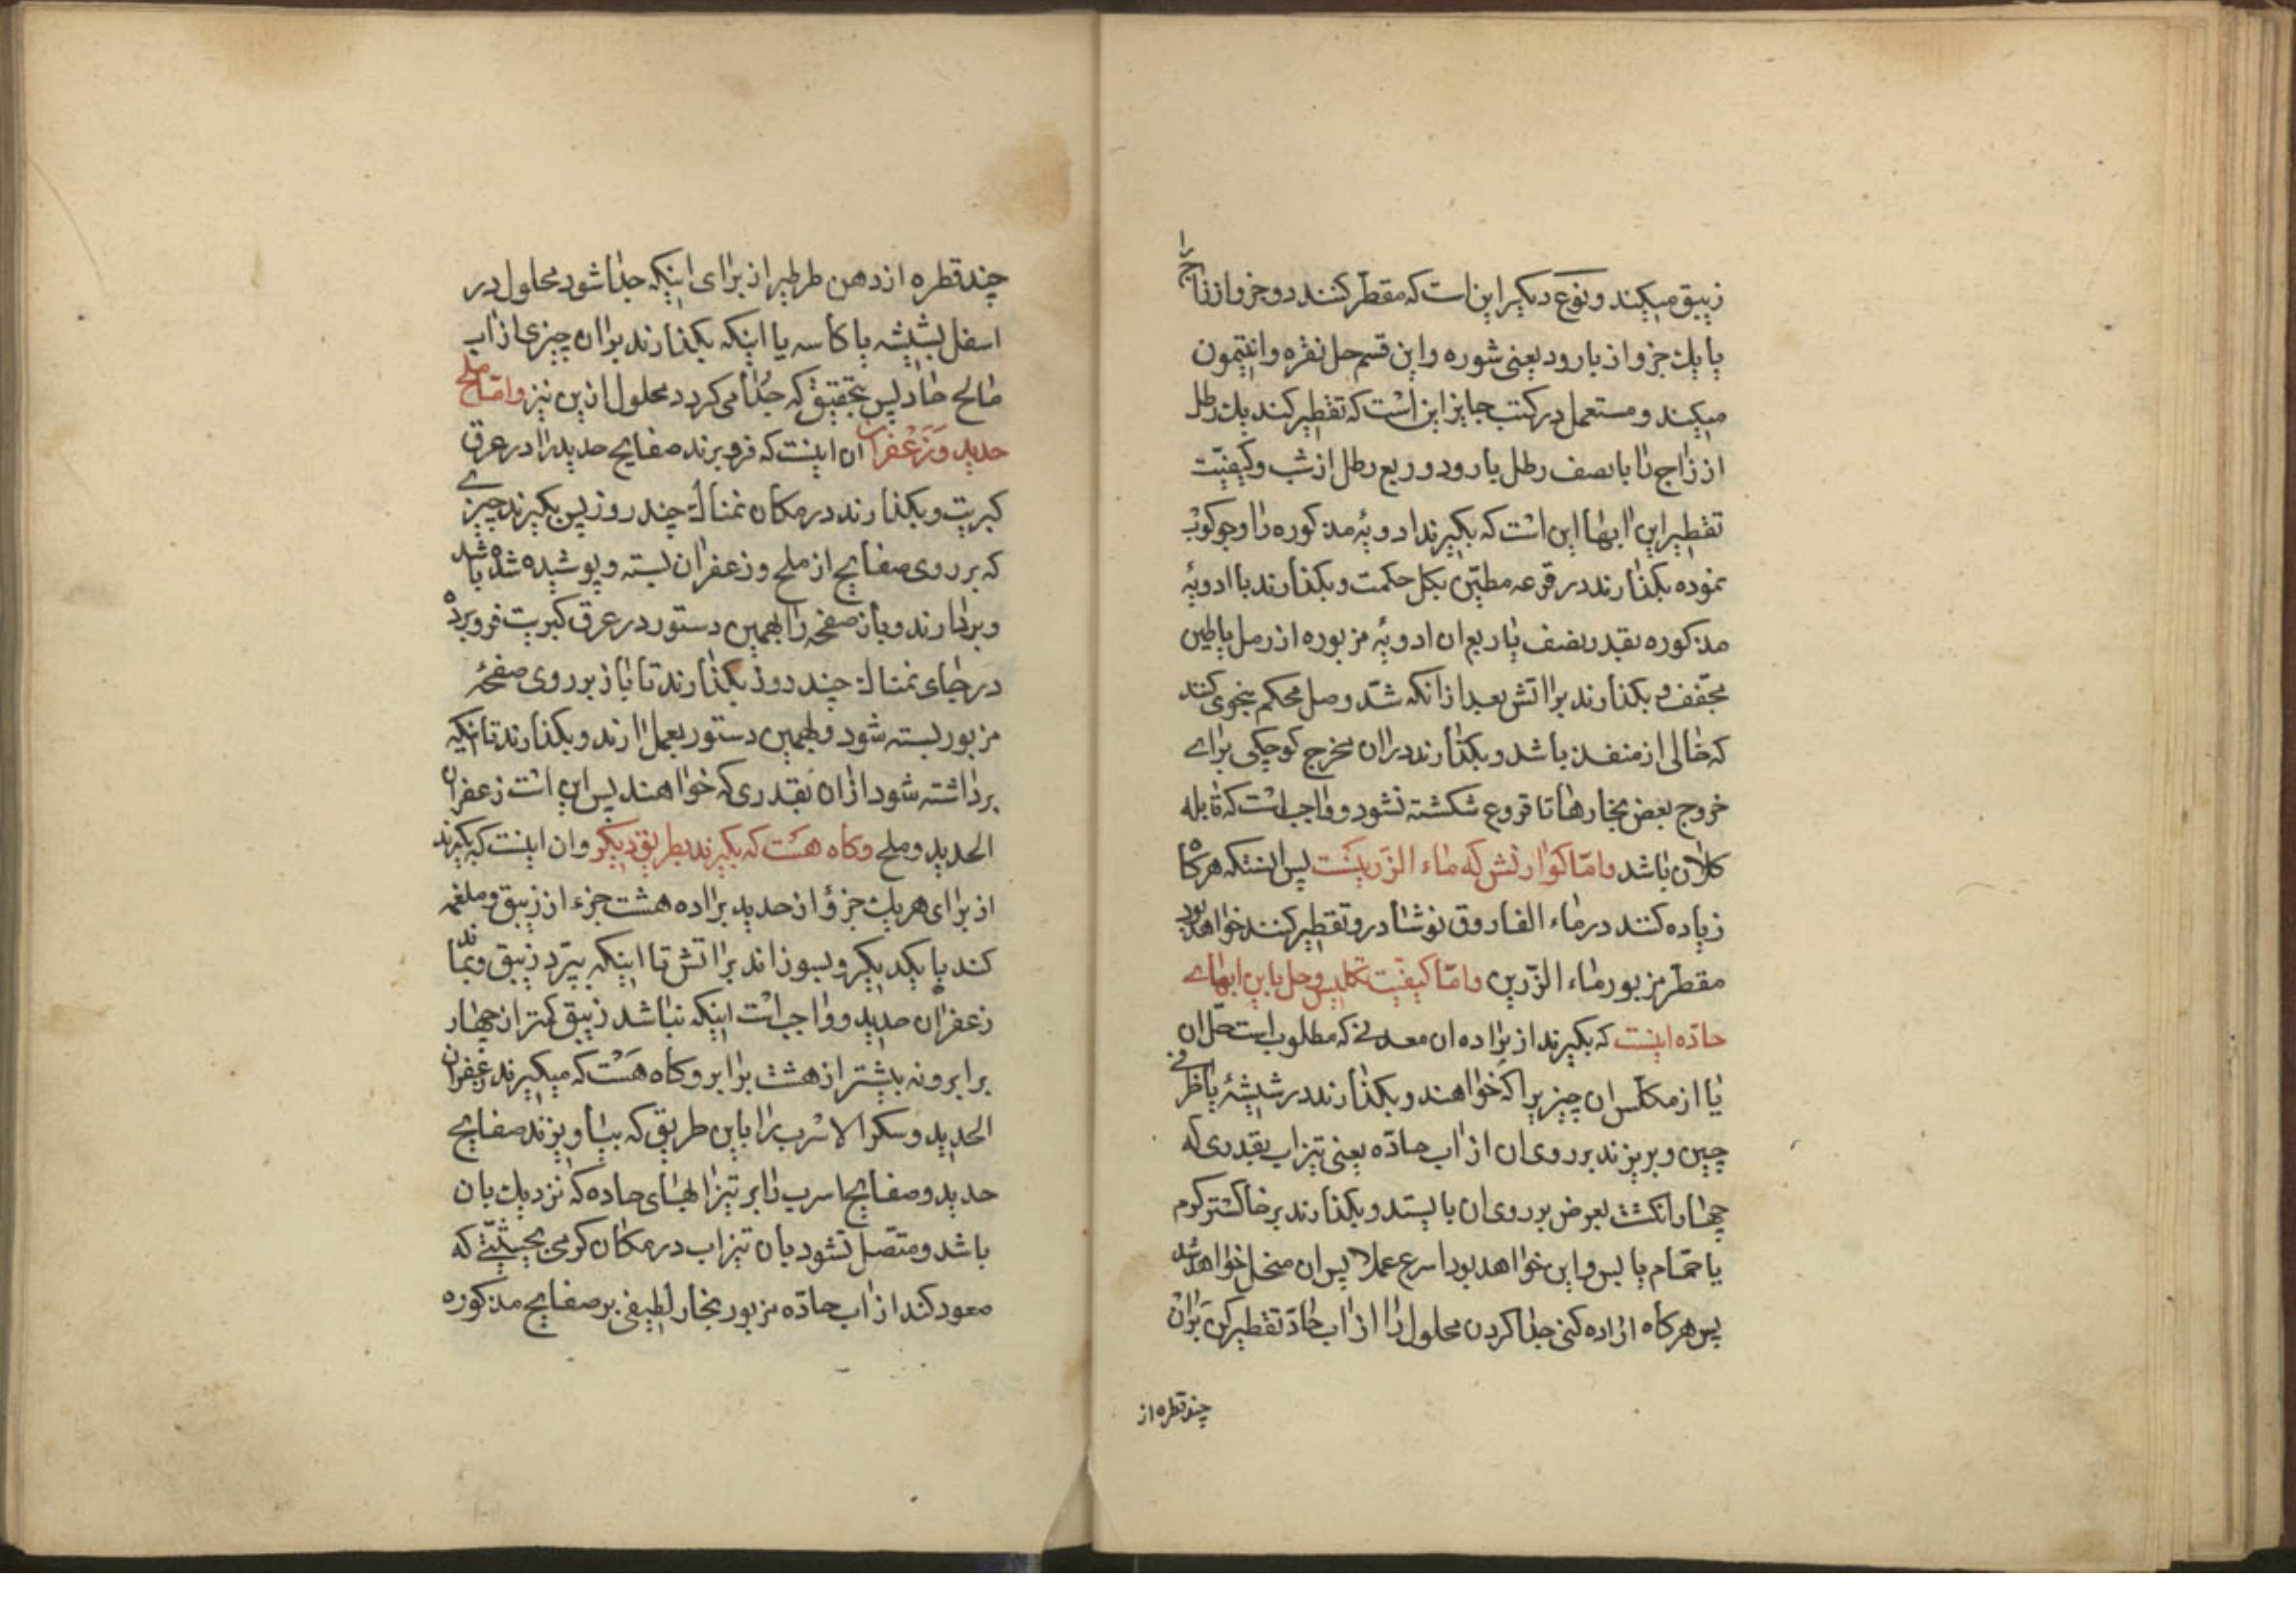 زیبق میکند و نوع دیکر این است که مقطر کنند دو جزو از زاج را
با یك جزو از بارود یعنی شوره و این قسم حل نقره و انتیمون
میکند و مستعمل در کتب جایز این است که تقطیر کند یك رطل
از زاج را با نصف رطل بارود و ربع رطل از شب و کیفیّت
تقطیر این ابها این است که بکیرند ادویۀ مذکوره را و جوکوب
نموده بکذارند در قرعه مطیّن بکل حکمت و بکذارند با ادویۀ
مذکوره بقدر نصف یا ربع ان ادویۀ مزبوره از رمل یا طین
مجفف و بکذارند بر اتش بعد از انکه شدّ وصل محکم بنحوی کنند
که خالی از منفذ باشد و بکذارند در ان مخرج کوچکی برای
خروج بعض بخارها تا قروع شکسته نشود و واجب است که قابله
کلان باشد و امّا کوارتش که ماء الزّرینست پس انستکه هرکاه
زیاده کنند در ماء الفاروق نوشادر و تقطیر کنند خواهد بود
مقطّر مزبور ماء الزّرین و امّا کیفیّت تکلیس و حل باین ابهای
حادّه اینست که بکیرند از براده ان معدنی که مطلوبست حلّ ان
یا از مکلّس ان چیزیرا که خواهند و بکذارند در شیشۀ یا ظرفی
چین و بریزند بر روی ان از اب حادّه یعنی تیزاب بقدری که
چهار انکشت بعرض بر روی ان بایستد و بکذارند بر خاکستر کرم
یا حمّام یابس و این خواهد بود اسرع عملا پس ان منحل خواهد شد
پس هرکاه اراده کنی جدا کردن محلول را از اب حادّ تقطیر کن بران
چند قطره از
چند قطره از دهن طرطیر از برای اینکه جدا شود محلول در
اسفل شیشه یا کاسه یا اینکه بکذارند بران چیزی از اب
مالح حاد پس بتحقیق که جدا می کردد محلول ازین نیز و امّا ملح
حدید و زَعْفران ان اینست که فرو برند صفایح حدید را در عرق
کبریت و بکذارند در مکان نمناك چند روز پس بکیرند چیزی
که بر روی صفایح از ملح و زعفران بسته و پوشیده شده باشد
و بردارند و باز صفحه را بهمین دستور در عرق کبریت فرو برده
در جای نمناك چند روز بکذارند تا باز بر روی صفحۀ
مزبور بسته شود و بهمین دستور بعمل ارند و بکذارند تا انکه
برداشته شود ازان بقدری که خواهند پس این است زعفران
الحدید و ملح و کاه هَست که بکیرند بطریق دیکر و ان اینست که بکیرند
از برای هر یك جزؤ از حدید براده هشت جزء از زیبق و ملغمه
کند با یکدیکر و بسوزاند بر اتش تا اینکه بپرد زیبق و بماند
زعفران حدید و واجب است اینکه نباشد زیبق کمتر از چهار
برابر و نه بیشتر از هشت برابر و کاه هَسْت که میکیرند زعفران
الحدید و سکر الاسرب را باین طریق که بیاویزند صفایح
حدید و صفایح اسرب را بر تیزابهای حاده که نزدیك بان
باشد و متصل نشود بان تیزاب در مکان کرمی بحیثیّتی که
صعود کند از اب حادّه مزبور بخار لطیفی بر صفایح مذکوره